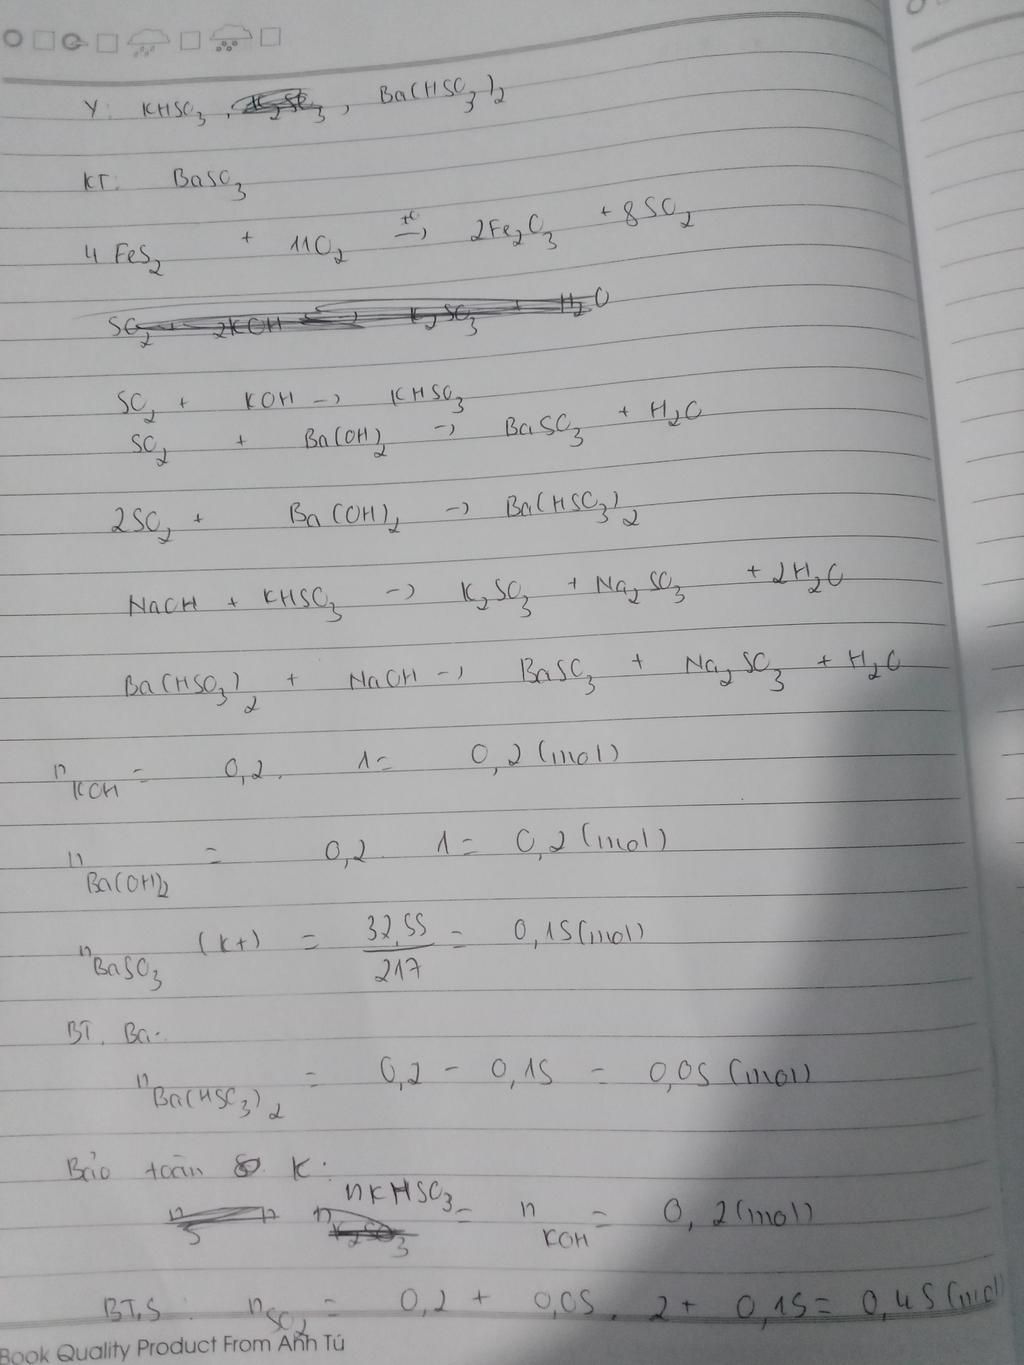 Y: KHSO3, , Ba(HSO3)2
KT: BaSO3
4 FeS2 + 11O2 t° → 2Fe2O3 + 8SO2
SO2 + 2KOH → K2SO3 + H2O
SO2 + KOH → KHSO3
SO2 + Ba(OH)2 → BaSO3 + H2O
2SO2 + Ba(OH)2 → Ba(HSO3)2
NaOH + KHSO3 → K2SO3 + Na2SO3 + 2H2O
Ba(HSO3)2 + NaOH → BaSO3 + Na2SO3 + H2O
nKOH = 0,2 . 1 = 0,2 (mol)
nBa(OH)2 = 0,2 . 1 = 0,2 (mol)
nBaSO3 (kt) = 32,55 / 217 = 0,15 (mol)
BT. Ba:
nBa(HSO3)2 = 0,2 - 0,15 = 0,05 (mol)
Bảo toàn K:
nKHSO3 = nKOH = 0,2 (mol)
BT.S: nSO2 = 0,2 + 0,05 . 2 + 0,15 = 0,45 (mol)
Book Quality Product From Anh Tú